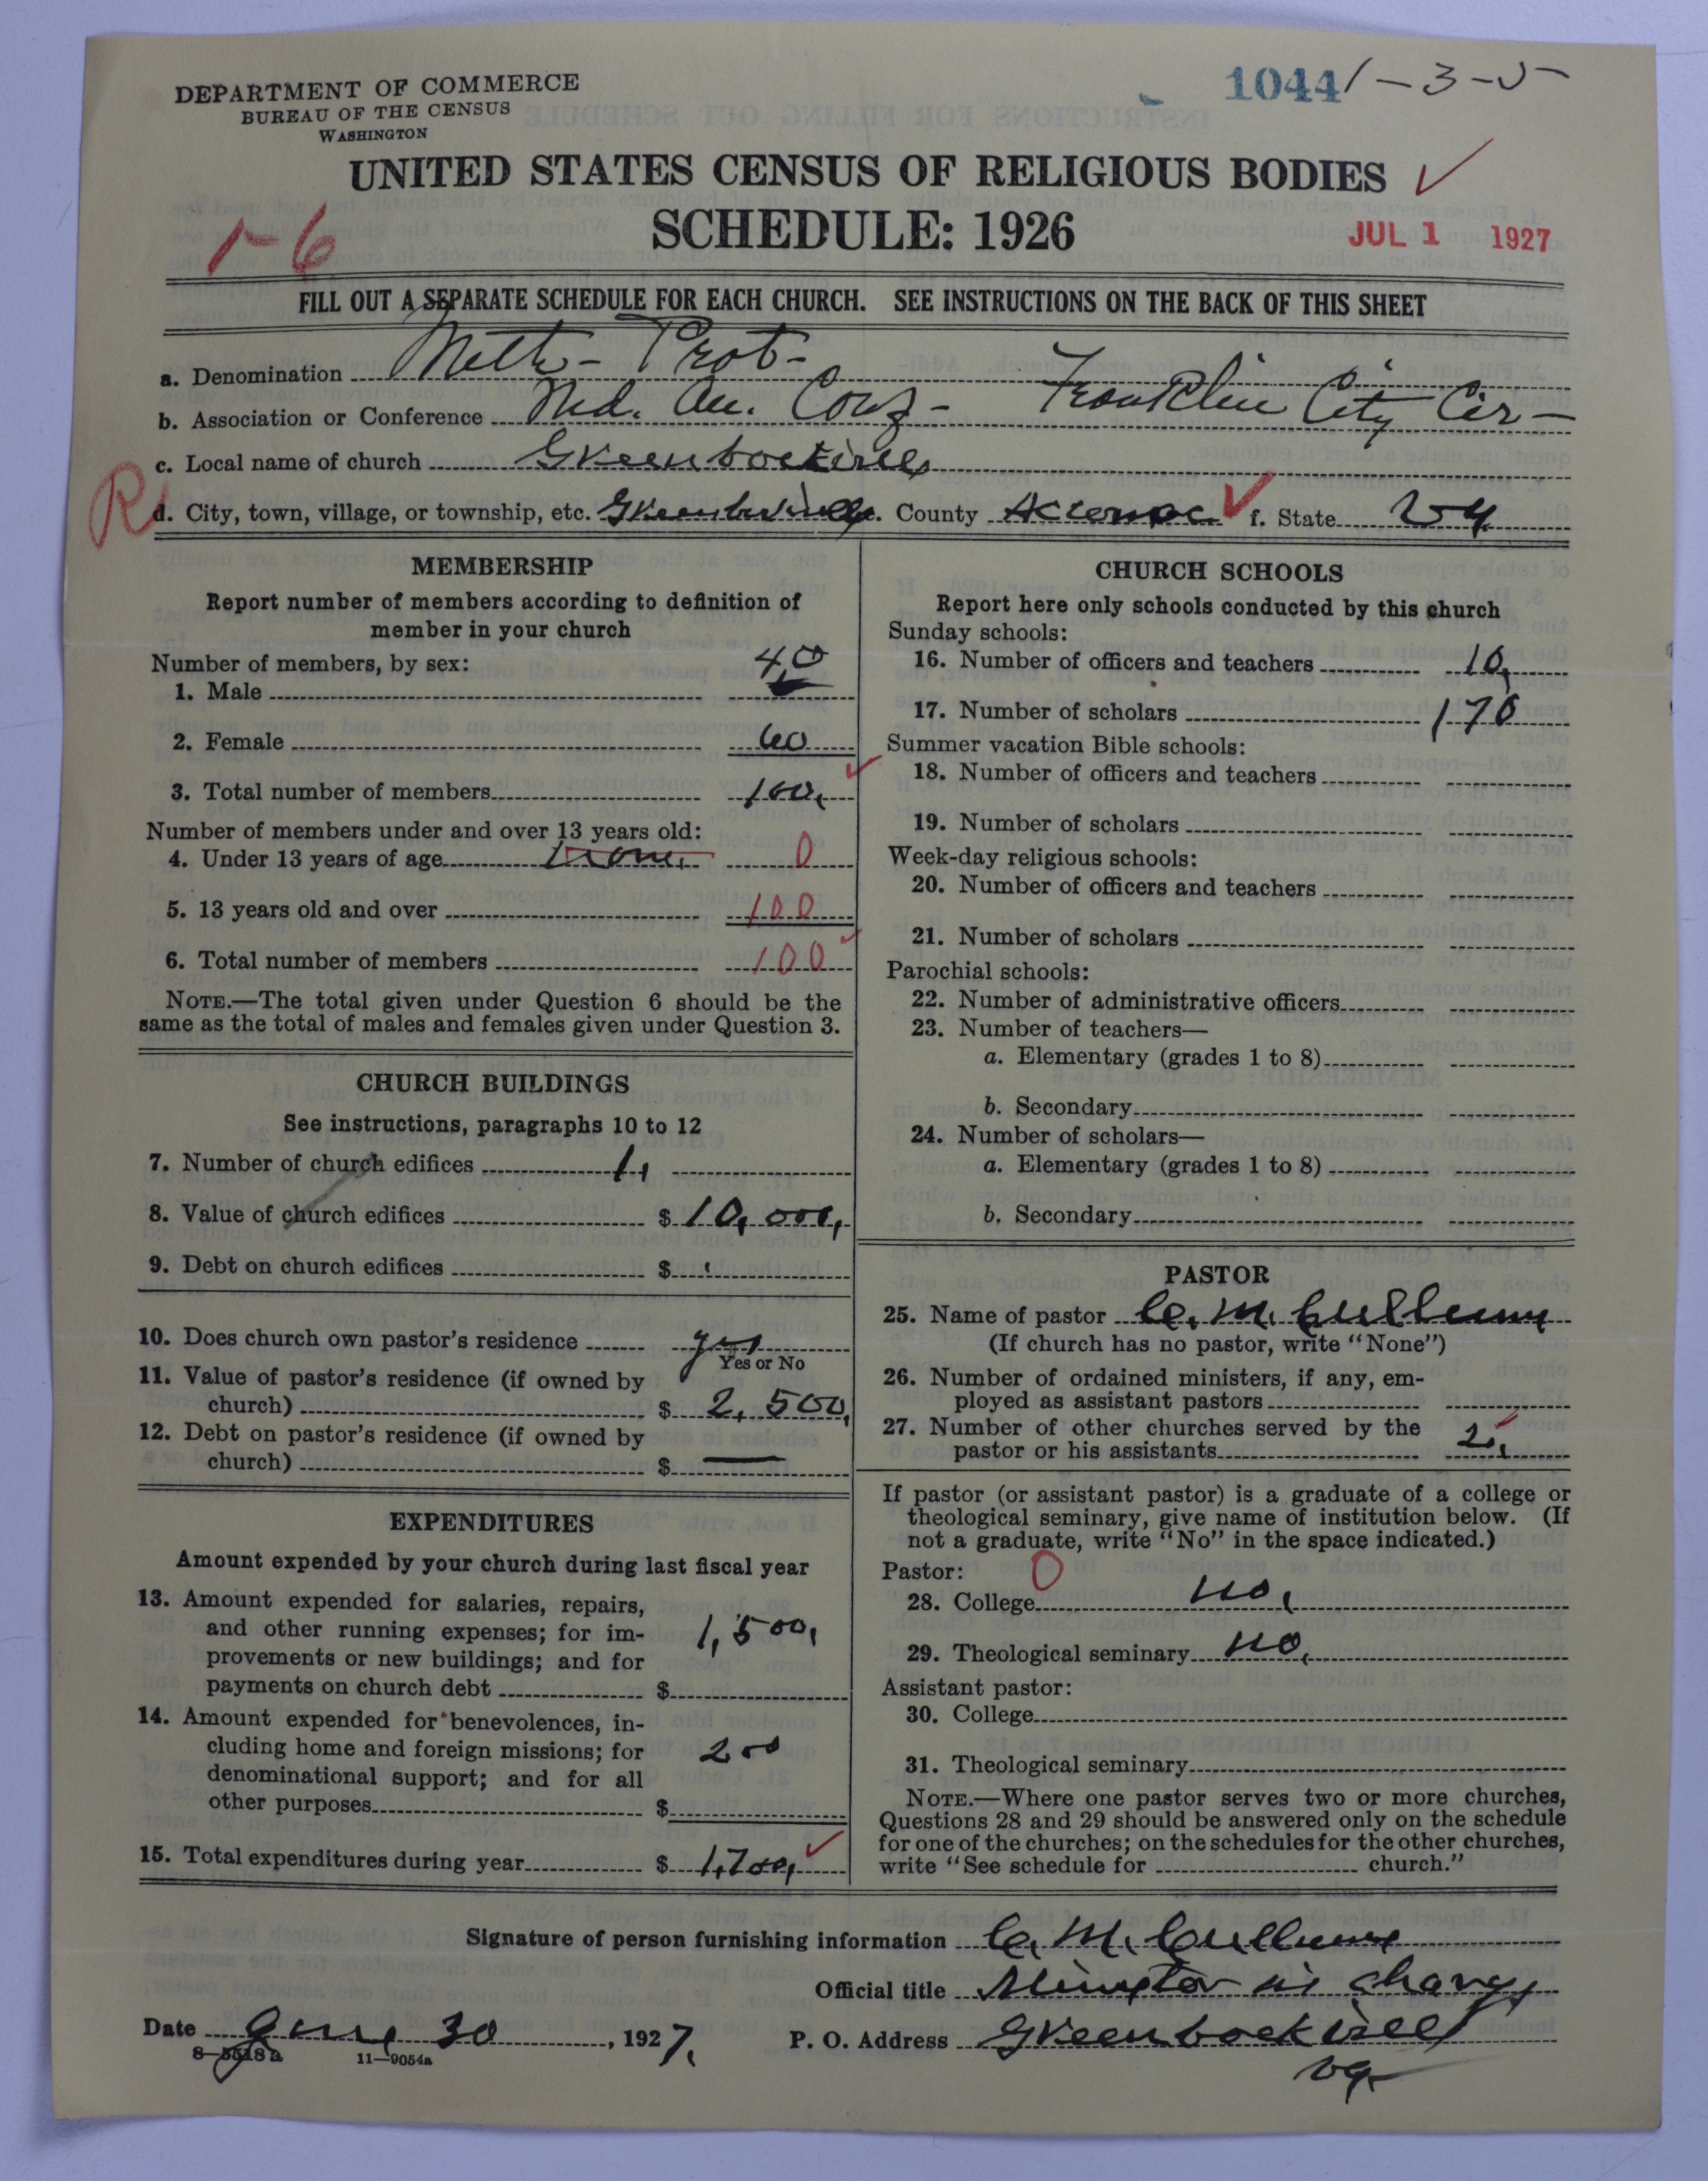 DEPARTMENT OF COMMERCE
BUREAU OF THE CENSUS
WASHINGTON
1044 1-3-5
UNITED STATES CENSUS OF RELIGIOUS BODIES ✓
1-6 SCHEDULE: 1926 JUL 1 1927
FILL OUT A SEPARATE SCHEDULE FOR EACH CHURCH. SEE INSTRUCTIONS ON THE BACK OF THIS SHEET
a. Denomination Meth- Prot-
b. Association or Conference Md. An. Conf- Franklin City Cir-
c. Local name of church Greenbackville
R d. City, town, village, or township, etc. Greenbackville e. County Accomac ✓ f. State Va.
MEMBERSHIP
Report number of members according to definition of
member in your church
Number of members, by sex:
1. Male 40
2. Female 60
3. Total number of members 100, ✓
Number of members under and over 13 years old:
4. Under 13 years of age none, 0
5. 13 years old and over 100
6. Total number of members 100 ✓
NOTE.—The total given under Question 6 should be the
same as the total of males and females given under Question 3.
CHURCH BUILDINGS
See instructions, paragraphs 10 to 12
7. Number of church edifices 1,
8. Value of church edifices $ 10,000,
9. Debt on church edifices $
10. Does church own pastor's residence yes
Yes or No
11. Value of pastor's residence (if owned by
church) $ 2,500,
12. Debt on pastor's residence (if owned by
church) $ —
EXPENDITURES
Amount expended by your church during last fiscal year
13. Amount expended for salaries, repairs,
and other running expenses; for im-
provements or new buildings; and for
payments on church debt $ 1,500,
14. Amount expended for benevolences, in-
cluding home and foreign missions; for
denominational support; and for all
other purposes $ 200
15. Total expenditures during year $ 1,700, ✓
CHURCH SCHOOLS
Report here only schools conducted by this church
Sunday schools:
16. Number of officers and teachers 10,
17. Number of scholars 170
Summer vacation Bible schools:
18. Number of officers and teachers
19. Number of scholars
Week-day religious schools:
20. Number of officers and teachers
21. Number of scholars
Parochial schools:
22. Number of administrative officers
23. Number of teachers—
a. Elementary (grades 1 to 8)
b. Secondary
24. Number of scholars—
a. Elementary (grades 1 to 8)
b. Secondary
PASTOR
25. Name of pastor C. M. Cullum
(If church has no pastor, write "None")
26. Number of ordained ministers, if any, em-
ployed as assistant pastors
27. Number of other churches served by the
pastor or his assistants 2, ✓
If pastor (or assistant pastor) is a graduate of a college or
theological seminary, give name of institution below. (If
not a graduate, write "No" in the space indicated.)
Pastor: 0
28. College no,
29. Theological seminary no,
Assistant pastor:
30. College
31. Theological seminary
NOTE.—Where one pastor serves two or more churches,
Questions 28 and 29 should be answered only on the schedule
for one of the churches; on the schedules for the other churches,
write "See schedule for church."
Signature of person furnishing information C. M. Cullum
Official title Minister in charge
Date June 30, 1927. P. O. Address Greenbackville
8-5518a 11-9054a
Va.